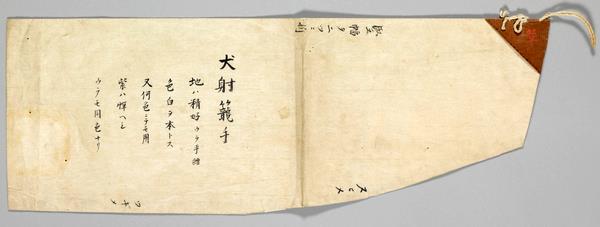 竪幅タニツニ折
犬射籠手
地ハ精好ウラ手緒
色白ヲ本トス
又何色ニテモ用
紫ハ憚ヘシ
ウラモ同色ナリ
ヌヒメ
ツギメ